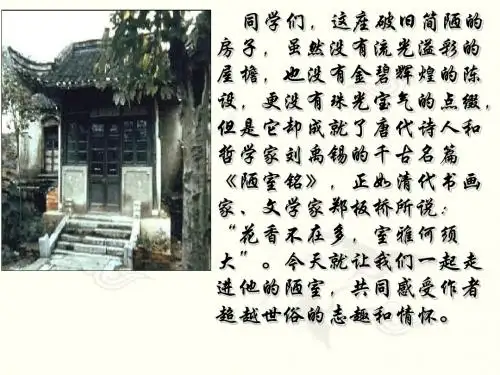 同学们，这座破旧简陋的
房子，虽然没有流光溢彩的
屋檐，也没有金碧辉煌的陈
设，更没有珠光宝气的点缀，
但是它却成就了唐代诗人和
哲学家刘禹锡的千古名篇
《陋室铭》，正如清代书画
家、文学家郑板桥所说：
“花香不在多，室雅何须
大”。今天就让我们一起走
进他的陋室，共同感受作者
超越世俗的志趣和情怀。